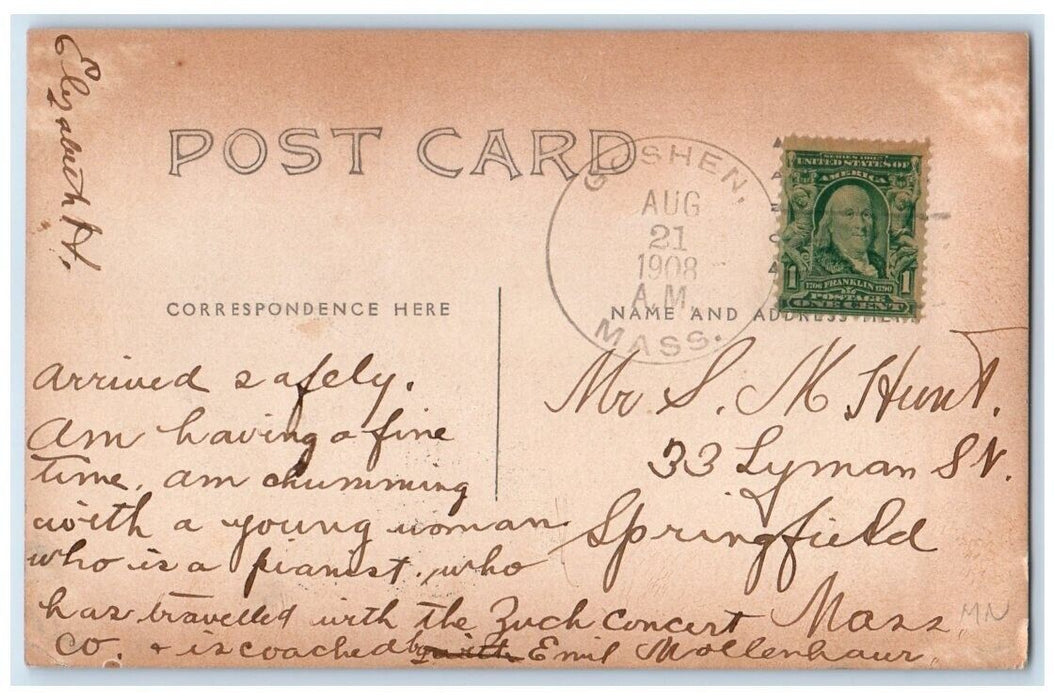 Elizabeth H.
POST CARD
GOSHEN,
AUG
21
1908
A.M.
MASS.
SERIES 1902
UNITED STATES OF
AMERICA
1 1706 FRANKLIN 1790 1
POSTAGE
ONE CENT
CORRESPONDENCE HERE
NAME AND ADDRESS HERE
arrived safely.
am having a fine
time. am chumming
with a young woman
who is a pianist, who
has travelled with the Zuch Concert
Co. + is coached by Emil Mollenhaur.
Mr S. M Hunt.
33 Lyman St.
Springfield
Mass
MN